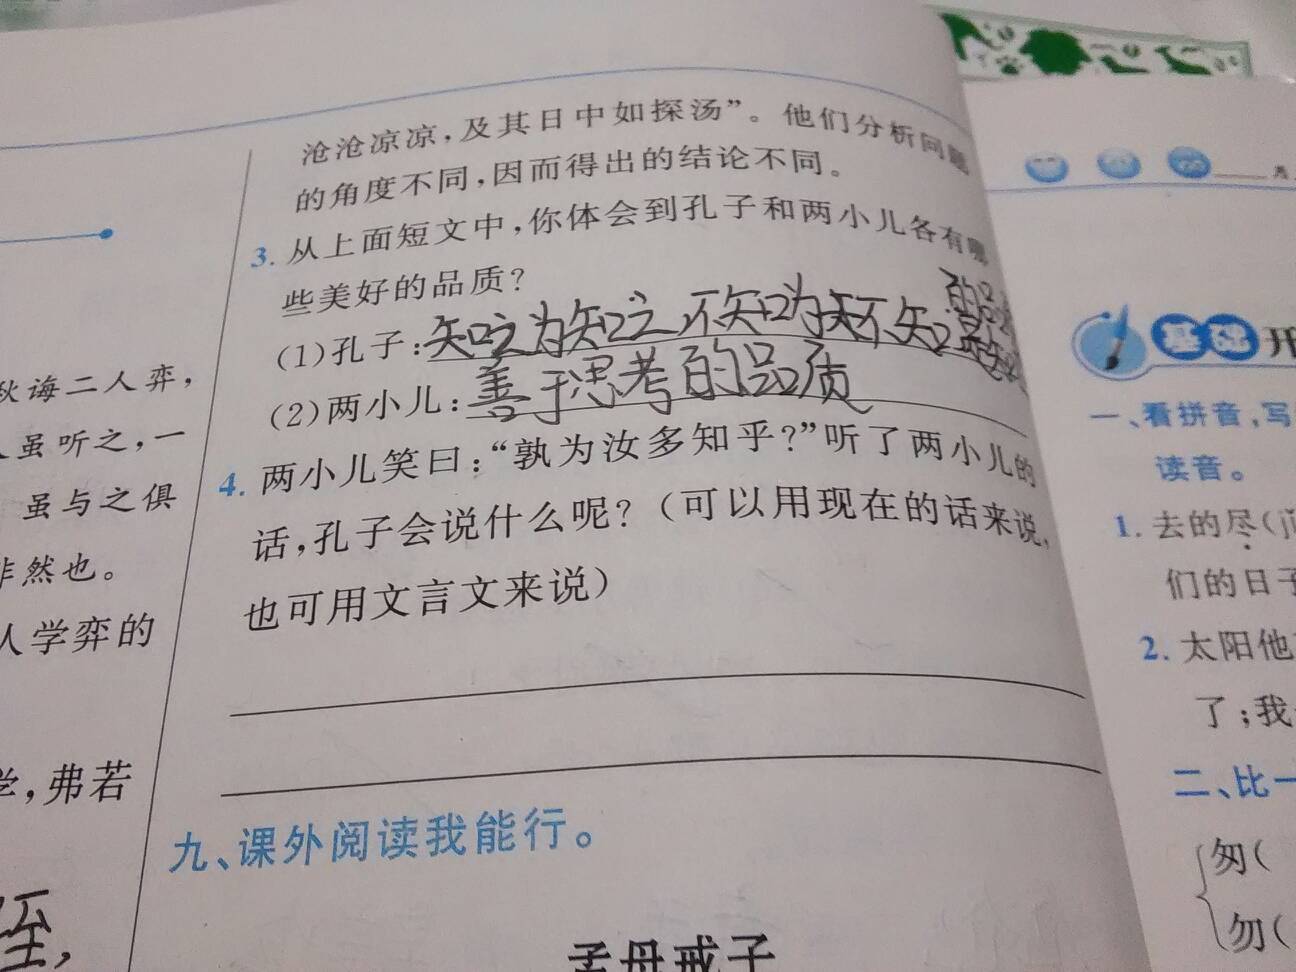 沧沧凉凉,及其日中如探汤”。他们分析问题
的角度不同,因而得出的结论不同。
3. 从上面短文中,你体会到孔子和两小儿各有哪
些美好的品质?
(1)孔子:知之为知之,不知为知不知
的品
(2)两小儿:善于思考的品质
4. 两小儿笑曰:“孰为汝多知乎?”听了两小儿的
话,孔子会说什么呢?(可以用现在的话来说,
也可用文言文来说)
九、课外阅读我能行。
孟母戒子
秋诲二人弈,
虽听之,一
虽与之俱
非然也。
人学弈的
学,弗若
至,
基础开
一、看拼音,写
读音。
1. 去的尽(jǐ
们的日子
2. 太阳他
了;我
二、比一
匆(
勿(